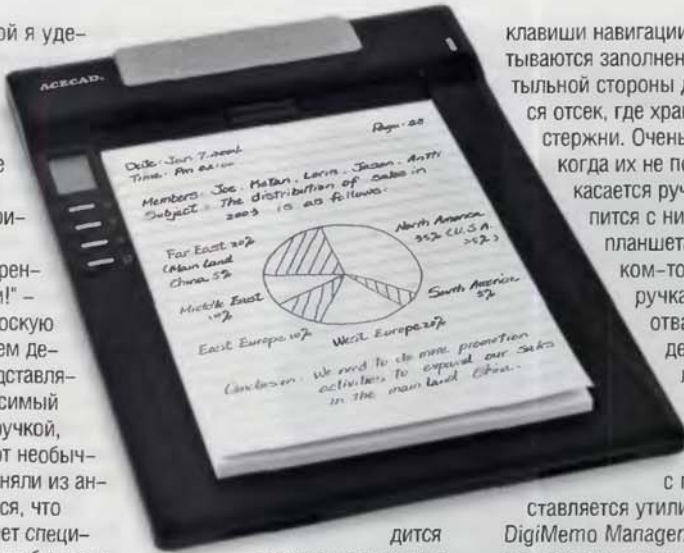 ой я уде-
е
ри-
рен-
и!" –
оскую
ем де-
дставля-
симый
ручкой,
от необыч-
няли из ан-
ся, что
ет специ-
ACECAD.
Date: Jan. 7. 2004
Time: Pm 02:00
Page: 25
Members: Joe, Matan, Loria, Jason, Antti
Subject: The distribution of sales in
2003 is as follows.
Far East 20%
(Main land
China 5%
North America
35% (U.S.A.
25%)
Middle East
10%
South America
5%
East Europe 10%
West Europe 20%
Conclusion: We need to do more promotion
activities to expand our sales
in the main land China.
дится
клавиши навигации
тываются заполнен
тыльной стороны д
ся отсек, где хран
стержни. Очень
когда их не по
касается руч
пится с ни
планшета
ком-то
ручка
отва
де
с п
ставляется утили
DigiMemo Manager